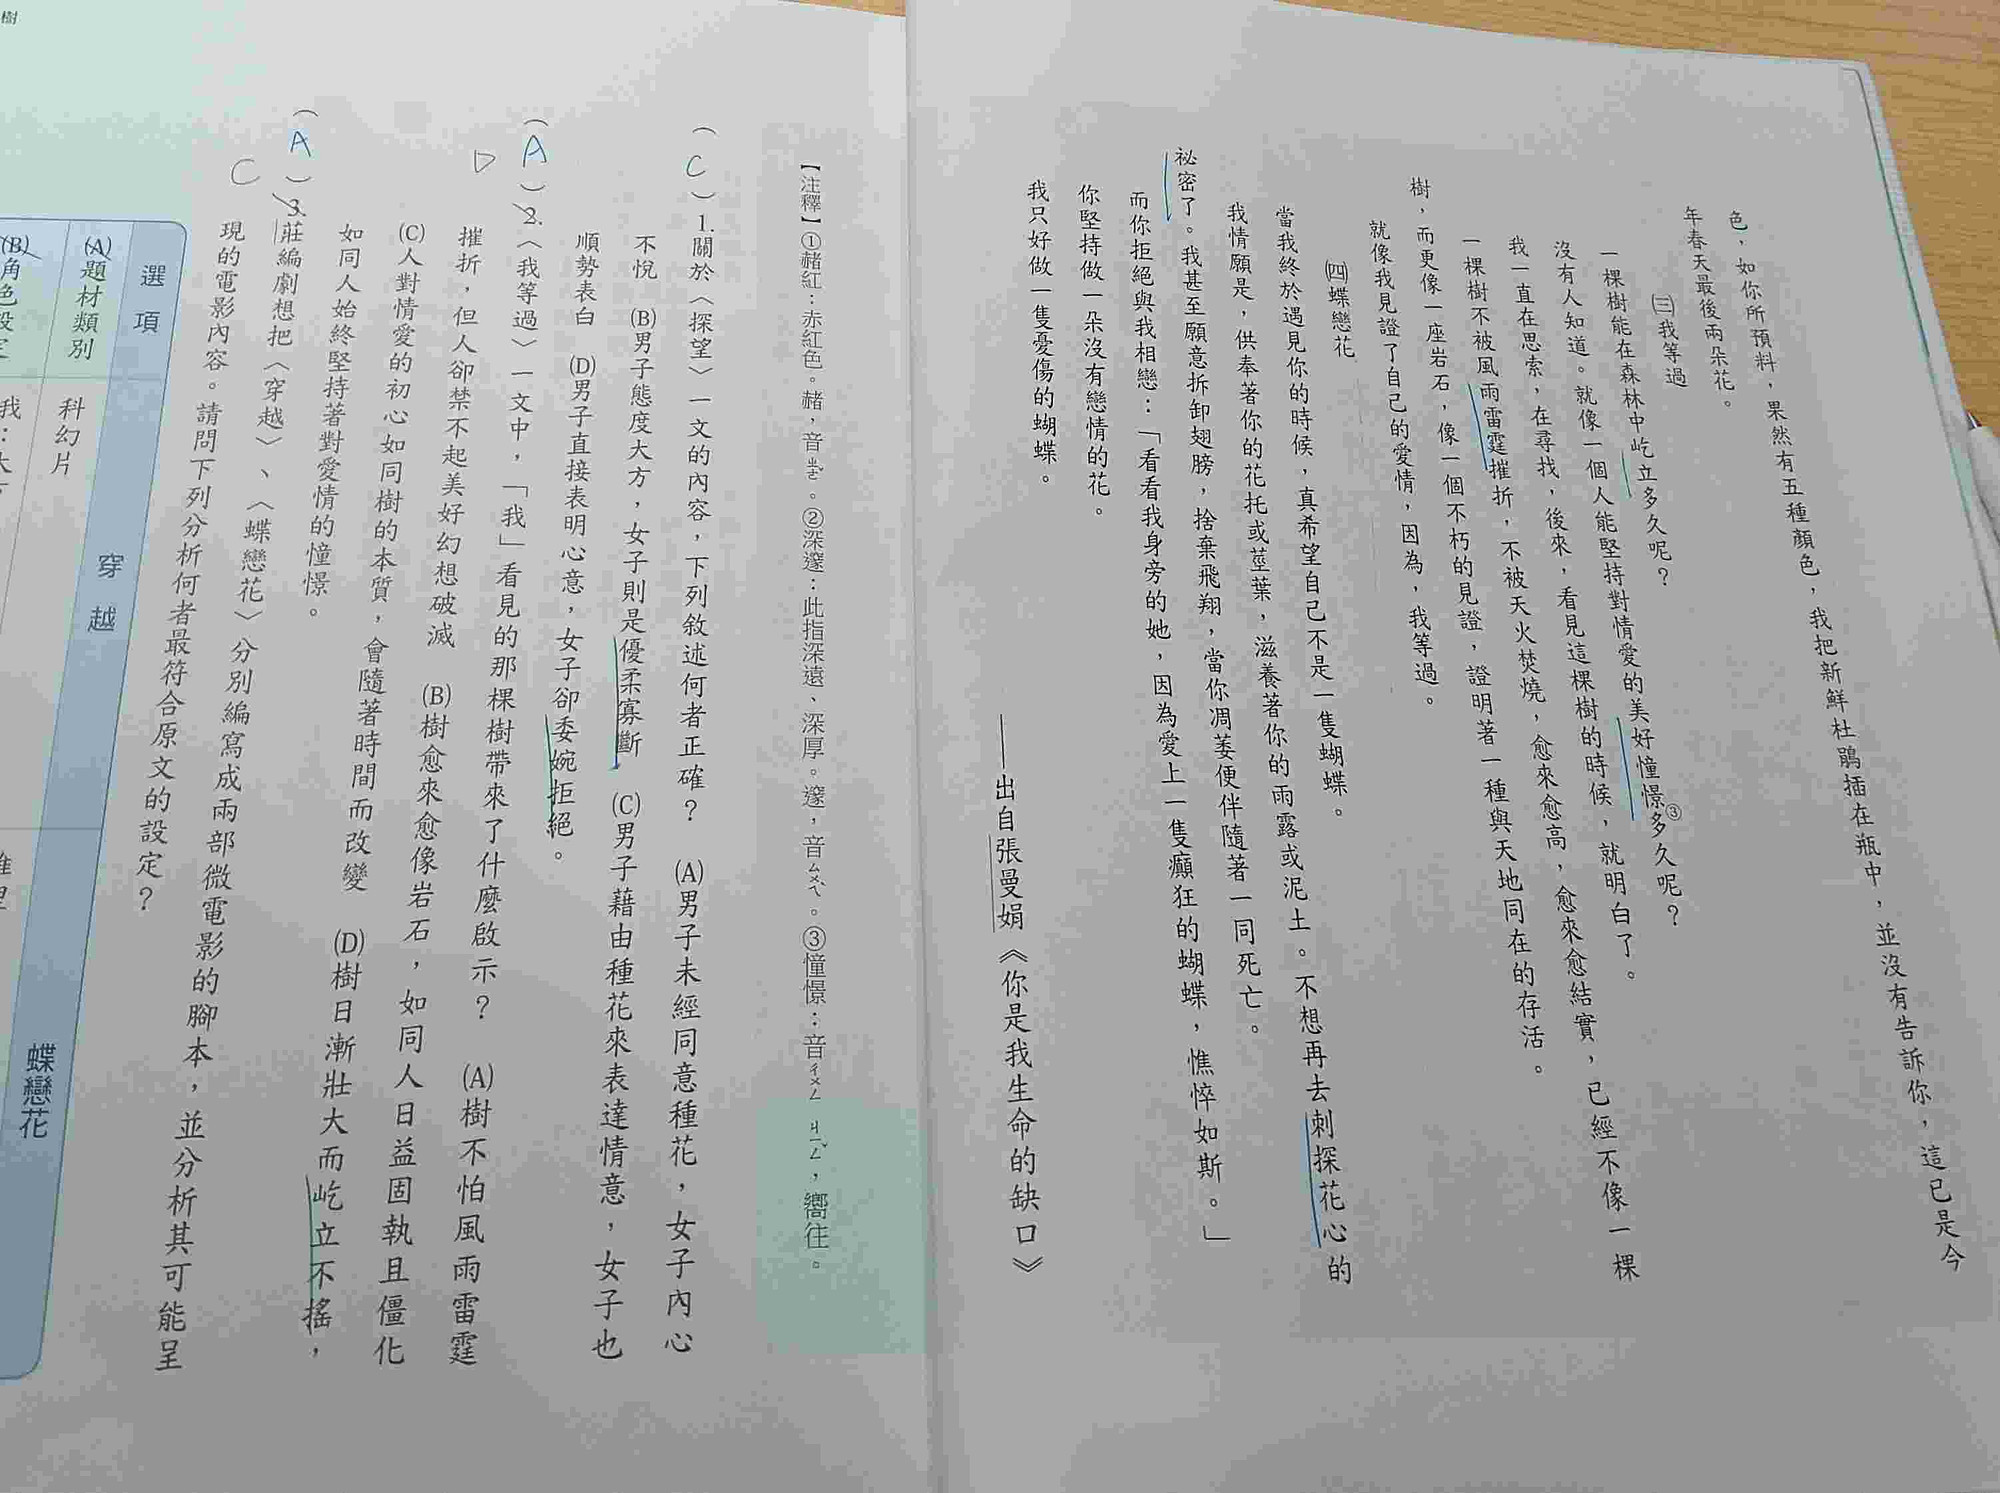 色，如你所預料，果然有五種顏色，我把新鮮杜鵑插在瓶中，並沒有告訴你，這已是今
年春天最後兩朵花。
㈢我等過
一棵樹能在森林中屹立多久呢？
沒有人知道。就像一個人能堅持對情愛的美好憧憬③多久呢？
我一直在思索，在尋找，後來，看見這棵樹的時候，就明白了。
一棵樹不被風雨雷霆摧折，不被天火焚燒，愈來愈高，愈來愈結實，已經不像一棵
樹，而更像一座岩石，像一個不朽的見證，證明著一種與天地同在的存活。
就像我見證了自己的愛情，因為，我等過。
㈣蝶戀花
當我終於遇見你的時候，真希望自己不是一隻蝴蝶。
我情願是，供奉著你的花托或莖葉，滋養著你的雨露或泥土。不想再去刺探花心的
祕密了。我甚至願意拆卸翅膀，捨棄飛翔，當你凋萎便伴隨著一同死亡。
而你拒絕與我相戀：「看看我身旁的她，因為愛上一隻癲狂的蝴蝶，憔悴如斯。」
你堅持做一朵沒有戀情的花。
我只好做一隻憂傷的蝴蝶。
——出自張曼娟《你是我生命的缺口》
【注釋】①赭紅：赤紅色。赭，音ㄓㄜˇ。②深邃：此指深遠、深厚。邃，音ㄙㄨㄟˋ。③憧憬：音ㄔㄨㄥ ㄐㄧㄥˇ，嚮往。
（C）1.關於〈探望〉一文的內容，下列敘述何者正確？ (A)男子未經同意種花，女子內心
不悅 (B)男子態度大方，女子則是優柔寡斷 (C)男子藉由種花來表達情意，女子也
順勢表白 (D)男子直接表明心意，女子卻委婉拒絕。
（A）2.〈我等過〉一文中，「我」看見的那棵樹帶來了什麼啟示？ (A)樹不怕風雨雷霆
D
摧折，但人卻禁不起美好幻想破滅 (B)樹愈來愈像岩石，如同人日益固執且僵化
(C)人對情愛的初心如同樹的本質，會隨著時間而改變 (D)樹日漸壯大而屹立不搖，
如同人始終堅持著對愛情的憧憬。
（A）3.莊編劇想把〈穿越〉、〈蝶戀花〉分別編寫成兩部微電影的腳本，並分析其可能呈
C
現的電影內容。請問下列分析何者最符合原文的設定？
選項 穿越 蝶戀花
(A)題材類別 科幻片
(B)角色設定 我：
樹